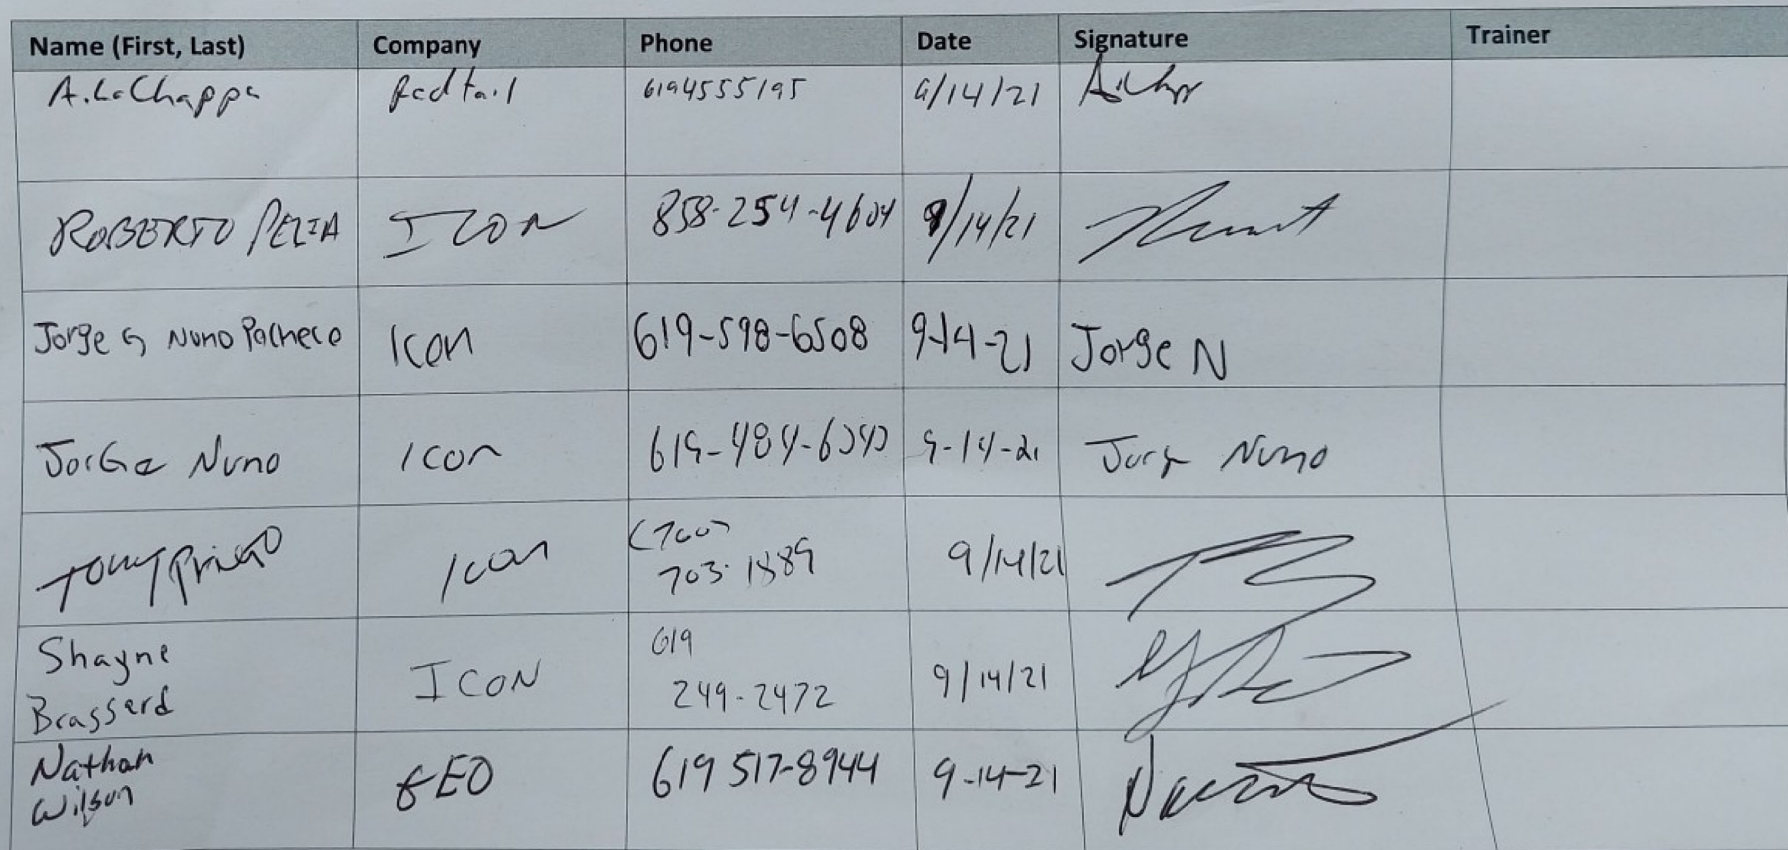 Name (First, Last) Company Phone Date Signature Trainer
A. LaChappa Redtail 6194555195 9/14/21
ROBERTO ICON 858-254-4604 9/14/21
Jorge G Nuno Pacheco Icon 619-598-6508 9-14-21 Jorge N
Jorge Nuno Icon 9-14-21 Jorge Nuno
Tony Prieto Icon (760)
703-1889 9/14/21
Shayne
Brassard ICON 619
249-2472 9/14/21
Nathan
Wilson GEO 619 517-8944 9-14-21